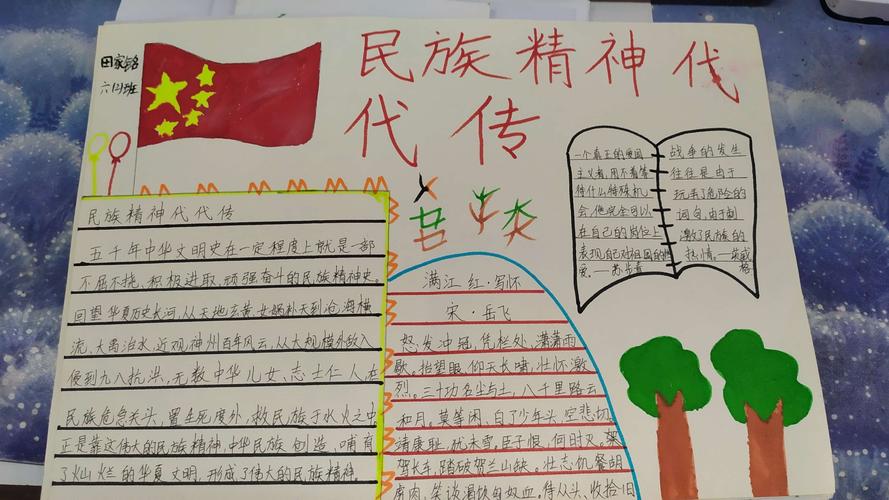 民族精神代
代传
六(2)班
民族精神代代传
五千年中华文明史在一定程度上就是一部
不屈不挠、积极进取、顽强奋斗的民族精神史。
回望华夏历史长河,从天地玄黄、女娲补天到沧海横
流、大禹治水,近观神州百年风云,从大规模外敌入
侵到九八抗洪,无数中华儿女、志士仁人在
民族危急关头,置生死度外,救民族于水火之中
正是靠这伟大的民族精神,中华民族创造、哺育
了灿烂的华夏文明,形成了伟大的民族精神。
满江红·写怀
宋·岳飞
怒发冲冠,凭栏处、潇潇雨
歇。抬望眼,仰天长啸,壮怀激
烈。三十功名尘与土,八千里路云
和月。莫等闲、白了少年头,空悲切。
靖康耻,犹未雪。臣子恨,何时灭。
驾长车,踏破贺兰山缺。壮志饥餐胡
虏肉,笑谈渴饮匈奴血。待从头、收拾旧
一个真正的爱国
主义者,用不着等
待什么特殊机
会,他完全可以
在自己的岗位上
表现自己对祖国的热
爱。——苏步青
战争的发生
往往是由于
玩弄了危险的
词句,由于刺
激了民族的
热情。——